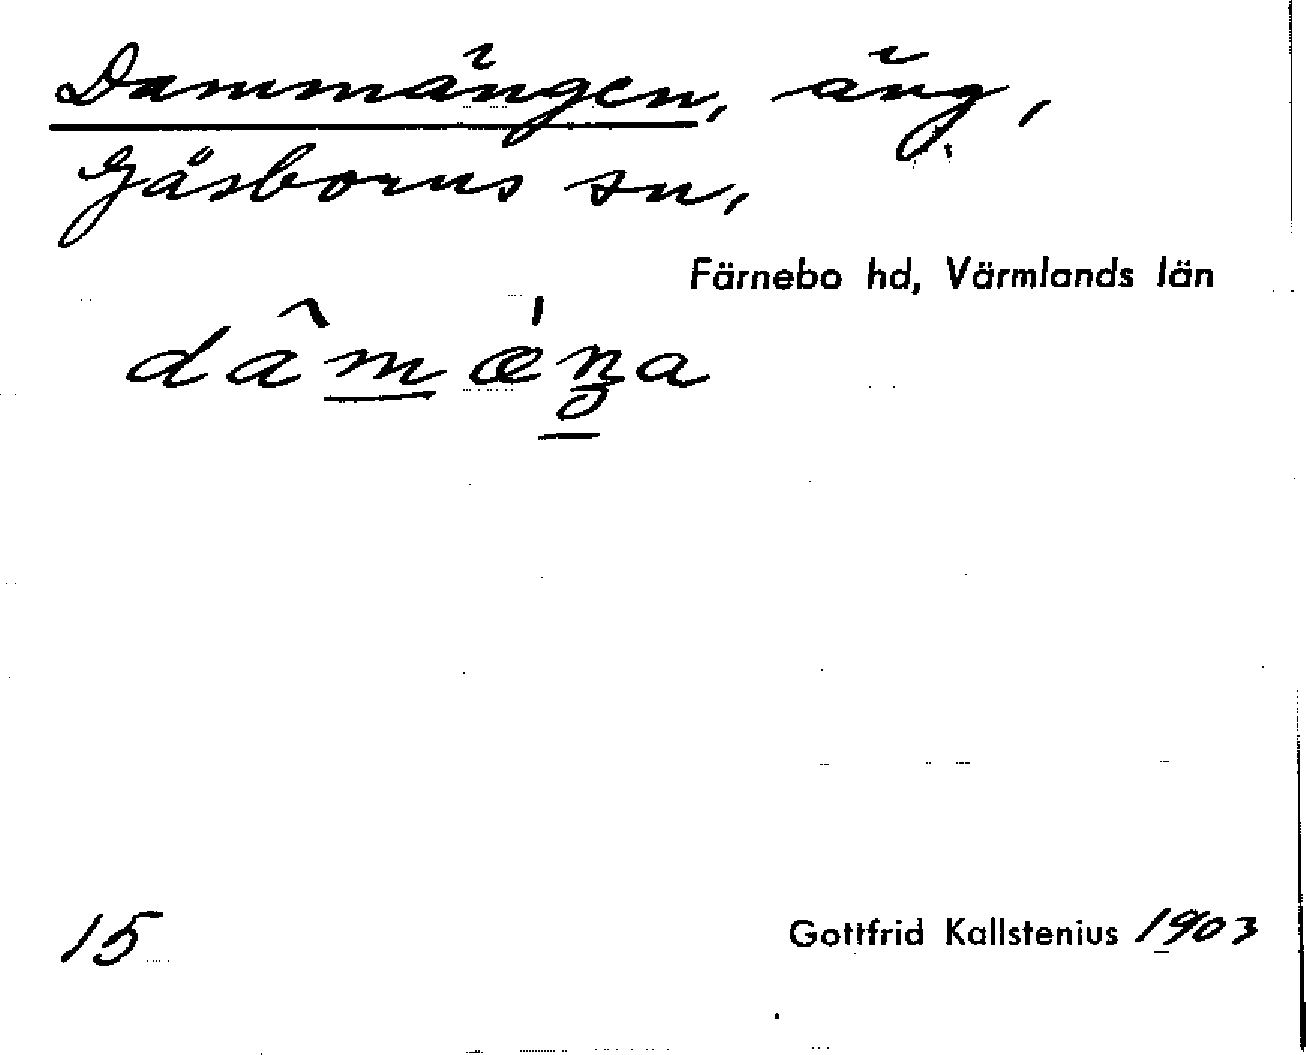 Dammängen, äng,
Gåsborns sn,
Färnebo hd, Värmlands län
dâmǽŋa
15 Gottfrid Kallstenius 1903